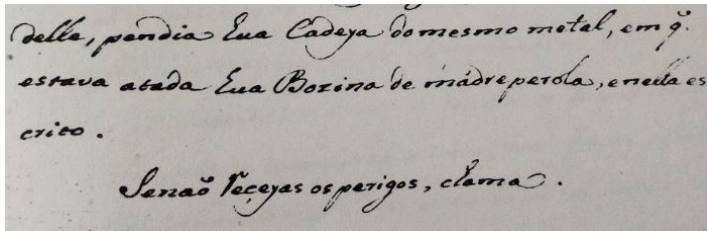 della, pendia hua Cadeya do mesmo metal, em q̃.
estava atada hua Bozina de madreperola, e nella es
crito.
Senaõ receyas os perigos, clama.